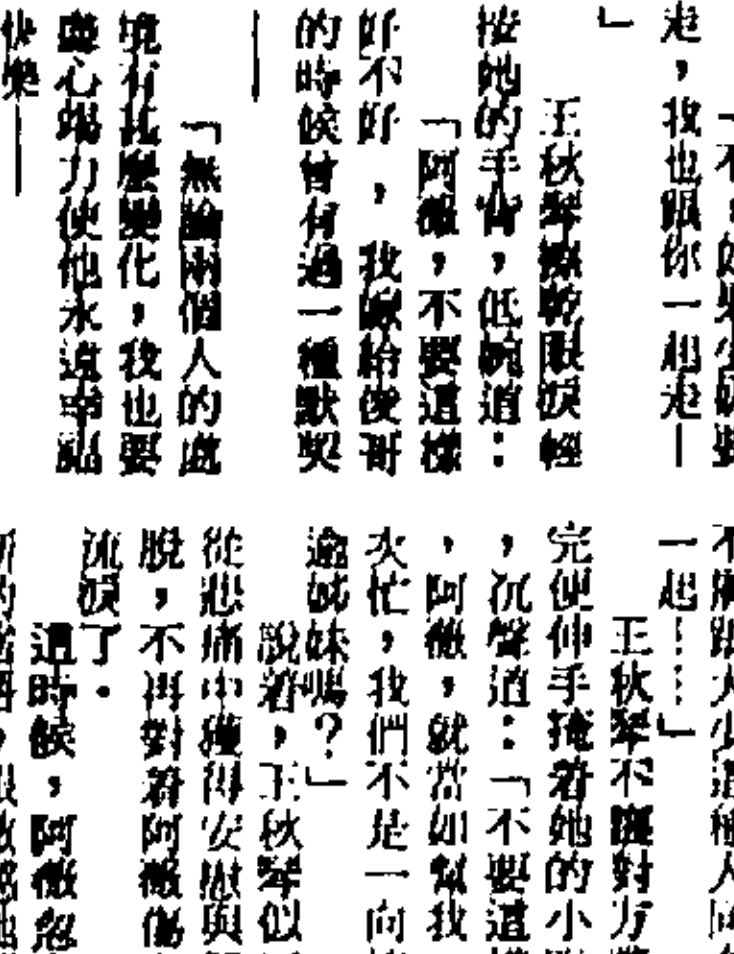 「不，如果少奶要
走，我也跟你一起走—
」
王秋琴擦乾眼淚輕
按她的手背，低婉道：
「阿薇，不要這樣
好不好，我嫁給俊哥
的時候曾有過一種默契
——
「無論兩個人的處
境有甚麼變化，我也要
盡心竭力使他永遠幸福
快樂——
一起……」
王秋琴不讓對方
完便伸手掩着她的小
，沉聲道：「不要這
，阿薇，就當如幫我
次忙，我們不是一向
逾姊妹嗎？」
說着，王秋琴似
從悲痛中獲得安慰與
脫，不再對着阿薇傷
流淚了。
這時候，阿薇忽